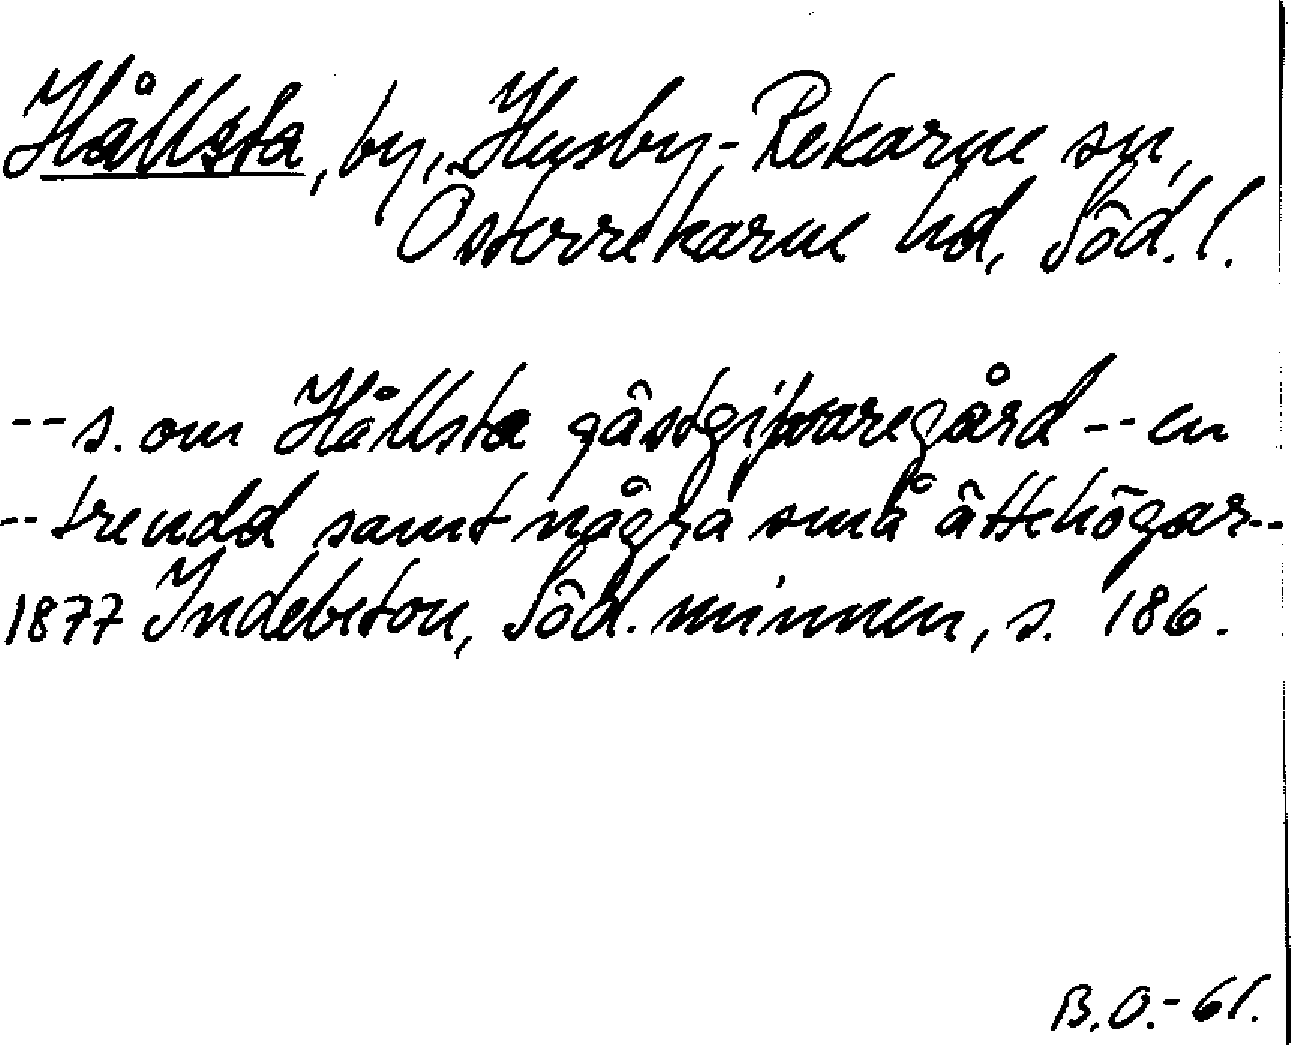 Hållsta, by, Husby-Rekarne sn,
Österrekarne hd, Söd. l.
-- s. om Hållsta gästgifvaregård -- en
-- treudd samt några små ättehögar --
1877 Indebetou, Söd. minnen, s. 186.
B.O. - 61.